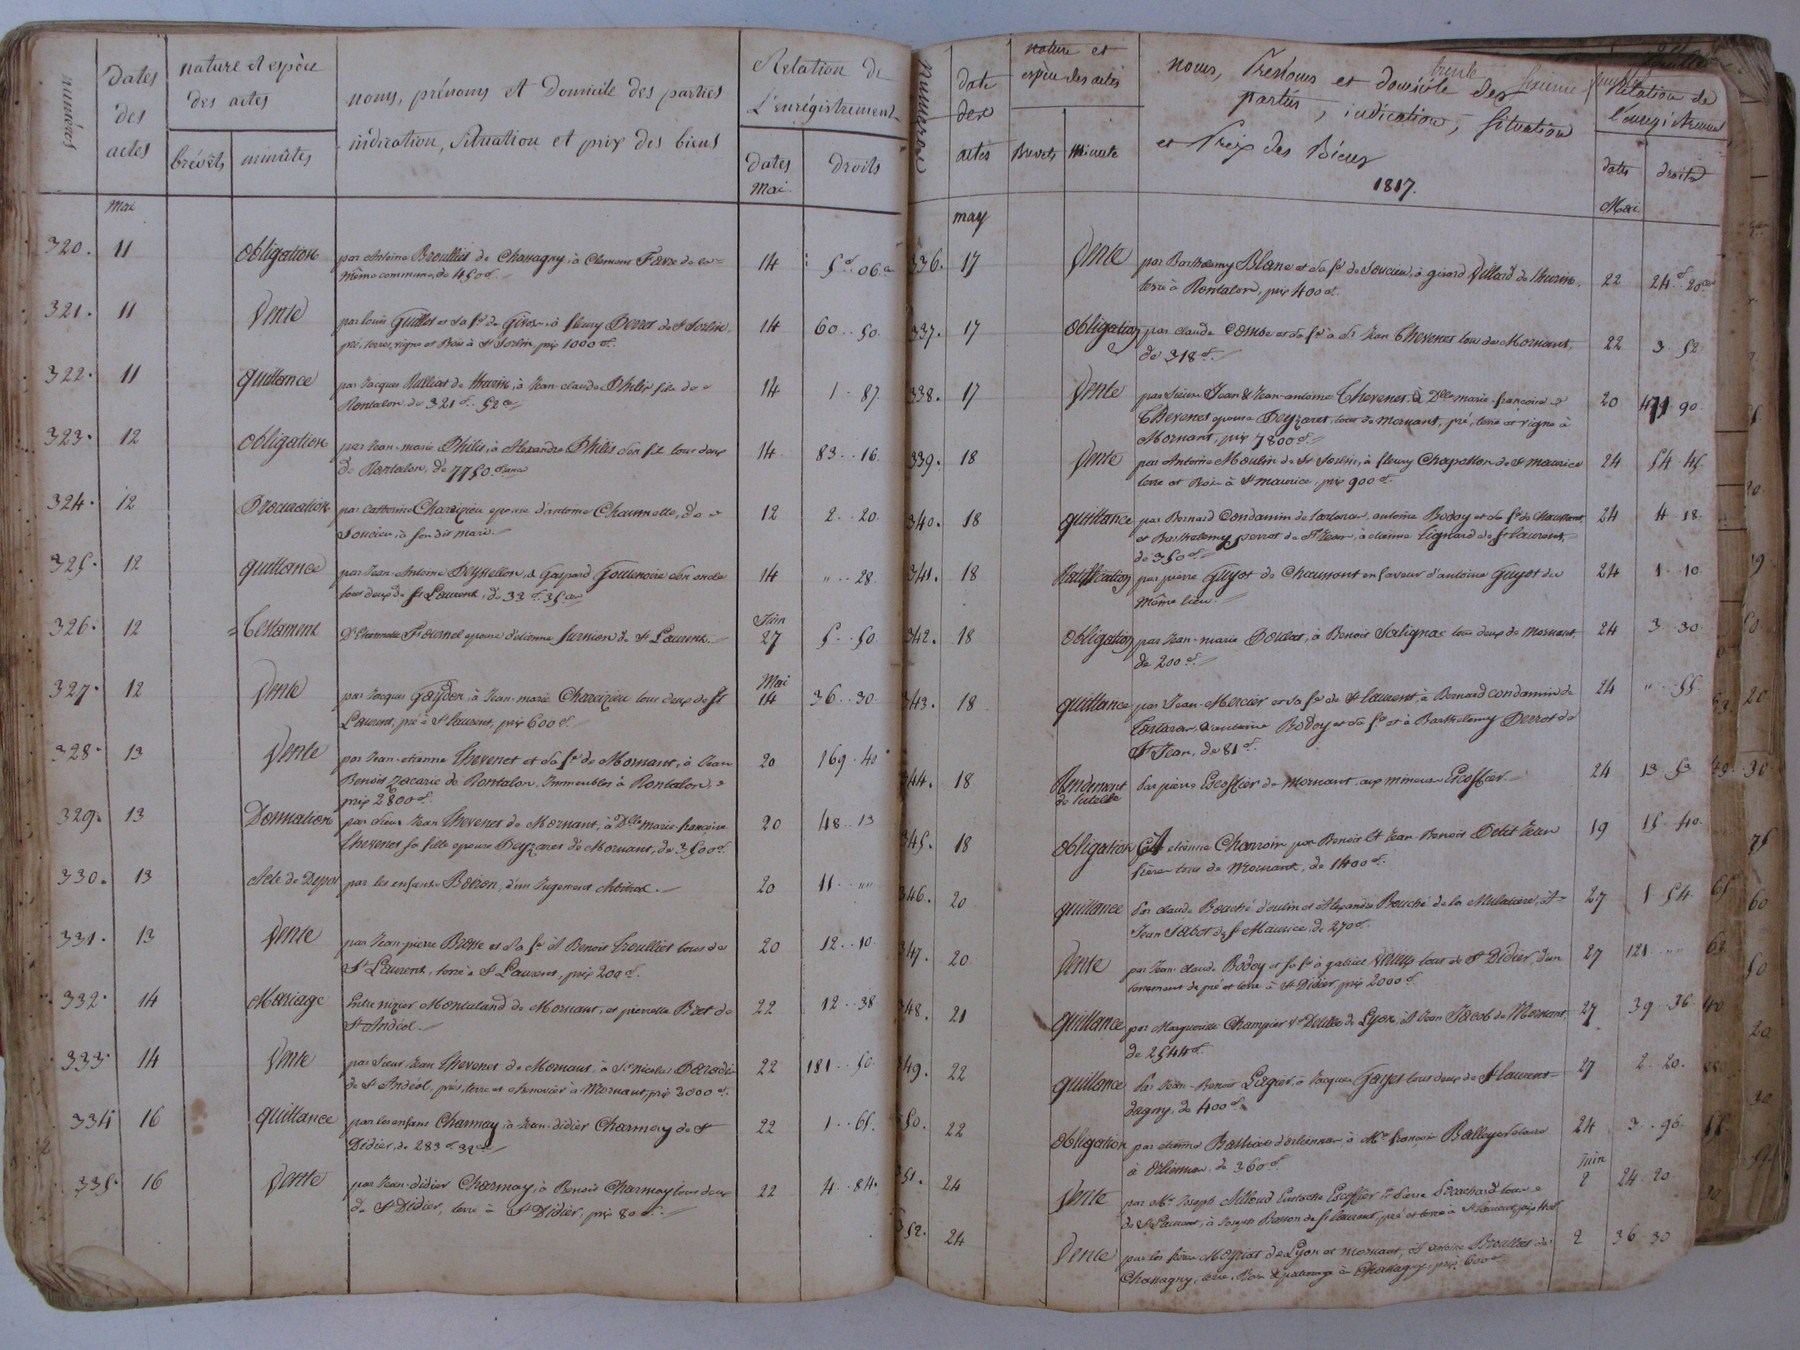 numéros
Dates des actes
nature et espèce des actes
brévéts
minutes
noms, prénoms et Domicile des parties
indication, situation et prix des biens
Relation de L'enrégistrement
dates
droits
Mai
Mai
320. 11 obligation par Antoine Broulliet de Chassagny, à Clement Favre de la 14 5f 06c
même commune, de 450f.
321. 11 Vente par louis Guillet et sa fe de Givors à fleury Perret de St Sorlin 14 60 .. 50
pré, terre, vigne et Bois à St Sorlin prix 1000f.
322. 11 quittance par Jacques de Thurin, à Jean-claude Philis fils de 14 1 .. 87
Rontalon de 321f. 52c
323. 12 obligation par Jean-marie Philis, à Alexandre Philis son fils tous deux 14 83 .. 16
de Rontalon, de 7750 francs
324. 12 Procuration par Catherine Charézieu epouse d'antoine Chaumette, de 12 2 .. 20
Soucieu à son dit mari.
325. 12 quittance par Jean-Antoine à Gaspard son oncle 14 " .. 28
tous deux de St Laurent, de 33f. 35c
326. 12 Testament De Fournel epouse d'etienne de St Laurent. Juin 27 5 .. 50
327. 12 Vente par Jacques à Jean-marie Charézieu tous deux de St Mai 14 36 .. 30
Laurent, pré à St laurent, prix 600f.
328. 13 Vente par Jean-etienne thevenet et sa fe de Mornant, à Jean 20 169 .. 40
Benoit Zacarie de Rontalon, Immeubles à Rontalon,
prix 2800f.
329. 13 Donnation par sieur Jean thevenet de Mornant, à Dlle marie-françoise 20 48 .. 13
thevenet sa fille epouse Peyzaret de Mornant, de 3500f.
330. 13 Acte de Depot par les enfants Boiron, d'un Jugement Arbitral. 20 11 .. ""
331. 13 Vente par Jean-pierre et sa fe à Benoit trouilliet tous de 20 12 .. 10
St Laurent, terre à St Laurent, prix 200f.
332. 14 Mariage Entre nizier Montaland de Mornant, et pierrette de 22 12 .. 38
St Andéol.
333. 14 Vente par sieur Jean thevenet de Mornant, à Sr nicolas 22 181 .. 50
de St Andéol, prés, terre et à Mornant, prix 3000f.
334 16 quittance par les enfans Charmay, à Jean-didier Charmay de St 22 1 .. 65
Didier, de 283f 32c
335. 16 Vente par Jean-didier Charmay, à Benoit Charmay tous deux 22 4 .. 84
de St Didier, terre à St Didier, prix 80f.
Numeros
date des actes
nature et espèce des actes
Brevets
Minute
noms, Prenoms et domicile des
parties, indication, situation
et Prix des Biens
1817.
Relation de l'enregistrement
dates
droits
may
Mai
336. 17 Vente par Barthelemy Blanc et sa fe de Soucieu, à girard Villard de thurin 22 24f 20c
terre à Rontalon, prix 400f.
337. 17 obligation par claude Combe et sa fe à Sr Jean Thevenet tous de Mornant, 22 3 52
de 318f.
338. 17 Vente par sieurs Jean & Jean-antoine Thevenet, à Dlle marie-françoise 20 471 90
Thevenet epouse Peyzaret, tous de mornant, pré, terre et vigne à
Mornant, prix 7800f.
339. 18 Vente par Antoine Moulin de St Sorlin, à fleury Chapellon de St maurice 24 54 45
terre et Bois à St maurice, prix 900f.
340. 18 quittance par Bernard Condamin de tartaras, antoine Bodoy et sa fe de 24 4 18
et Barthelemy perret de St Jean, à etienne de St laurent,
de 350f.
341. 18 Ratiffication par pierre Guyot de Chaussont en faveur d'antoine Guyot du 24 1 10
même lieu.
342. 18 obligation par Jean-marie à Benoit Salignac tous deux de mornant, 24 3 30
de 200f.
343. 18 quittance par Jean-Mercier et sa fe de St laurent, à Bernard condamin de 24 " 55
tartaras, antoine Bodoy et sa fe et à Barthelemy Perret de
St Jean, de 81f.
344. 18 de tutelle Par pierre Escoffier de mornant aux mineurs Escoffier. 24 13 53
345. 18 obligation etienne par Benoit et Jean Benoit Petit Jean 19 15 40
frères tous de Mornant, de 1400f.
346. 20 quittance Par claude Bouché d'oulin et Alexandre Bouché de la Mulatière, à 27 1 54
Jean de St Maurice de 270f.
347. 20 Vente par Jean-claude Bodoy et sa fe à gabriel tous de St Didier, d'un 27 121 ""
tenement de pré et terre à St Didier prix 2000f.
348. 21 quittance par Marguerite Champier de Lyon, à Jean Jacob de Mornant 27 39 36
de 2544f.
349. 22 quittance Par Jean-Benoit à Jacques tous deux de St laurent 27 2 20
dagny, de 400f.
350. 22 obligation par etienne d'orlienas, à Me Notaire 24 3 .. 96
à Orlienas. de 360f.
351. 24 Vente par Mr Joseph Escoffier Pierre tous Juin 2 24 20
de St Laurent, à Joseph de St laurent, pré et terre à St laurent prix 400f
352. 24 Vente par les frères de Lyon et mornant, à antoine Broulliet de 2 36 30
Chassagny, terre, Bois & paturage à Chassagny, prix 600f.